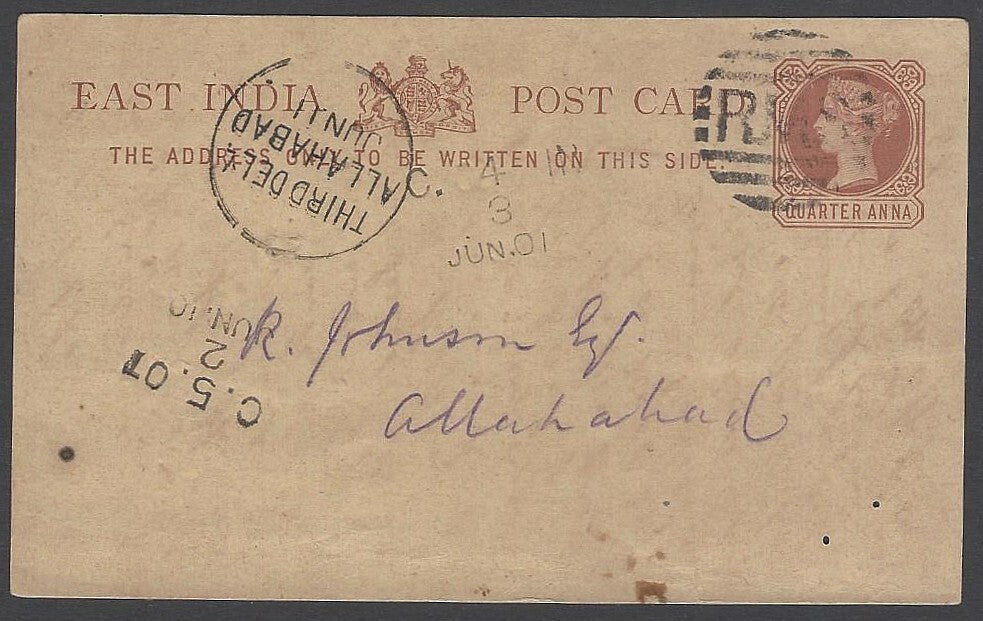 EAST INDIA POST CARD
THE ADDRESS ONLY TO BE WRITTEN ON THIS SIDE.
QUARTER ANNA
THIRD DELY.
ALLAHABAD
JUN.11
C. 4
3
JUN.01
C.5.01
2
JUN.10
R. Johnson Esq.
Allahabad